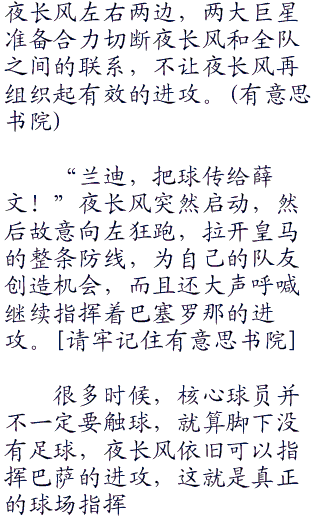 夜长风左右两边，两大巨星
准备合力切断夜长风和全队
之间的联系，不让夜长风再
组织起有效的进攻。(有意思
书院)
“兰迪，把球传给薛
文！”夜长风突然启动，然
后故意向左狂跑，拉开皇马
的整条防线，为自己的队友
创造机会，而且还大声呼喊
继续指挥着巴塞罗那的进
攻。[请牢记住有意思书院]
很多时候，核心球员并
不一定要触球，就算脚下没
有足球，夜长风依旧可以指
挥巴萨的进攻，这就是真正
的球场指挥